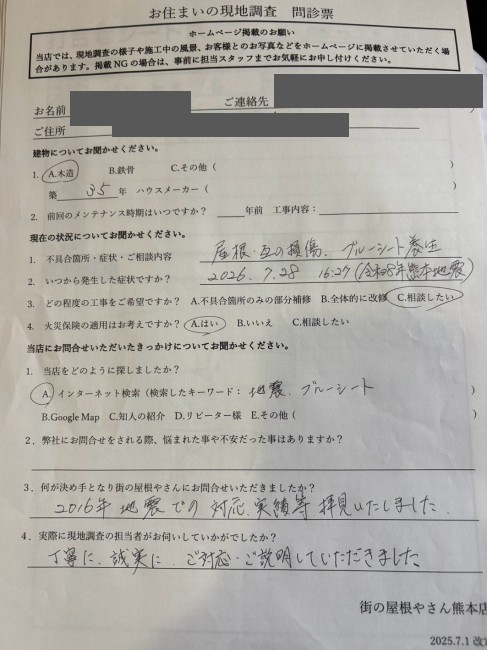 お住まいの現地調査 問診票
ホームページ掲載のお願い
当店では、現地調査の様子や施工中の風景、お客様とのお写真などをホームページに掲載させていただく場
合があります。掲載NGの場合は、事前に担当スタッフまでお気軽にお申し付けください。
お名前 ご連絡先
ご住所
建物についてお聞かせください。
1. A.木造 B.鉄骨 C.その他（ ）
築 35 年 ハウスメーカー（ ）
2. 前回のメンテナンス時期はいつですか？ 年前 工事内容：
現在の状況についてお聞かせください。
1. 不具合箇所・症状・ご相談内容 屋根・瓦の損傷、ブルーシート養生
2. いつから発生した症状ですか？ 2026. 7.28 16:27 (令和8年熊本地震)
3. どの程度の工事をご希望ですか？ A.不具合箇所のみの部分補修 B.全体的に改修 C.相談したい
4. 火災保険の適用はお考えですか？ A.はい B.いいえ C.相談したい
当店にお問合せいただいたきっかけについてお聞かせください。
1. 当店をどのように探しましたか？
A. インターネット検索（検索したキーワード： 地震、ブルーシート ）
B.Google Map C.知人の紹介 D.リピーター様 E.その他（ ）
2. 弊社にお問合せをされる際、悩まれた事や不安だった事はありますか？
3. 何が決め手となり街の屋根やさんにお問合せいただきましたか？
2016年 地震での対応、実績等 拝見いたしました。
4. 実際に現地調査の担当者がお伺いしていかがでしたか？
丁寧に、誠実に、ご対応・ご説明していただきました
街の屋根やさん熊本店
2025.7.1 改